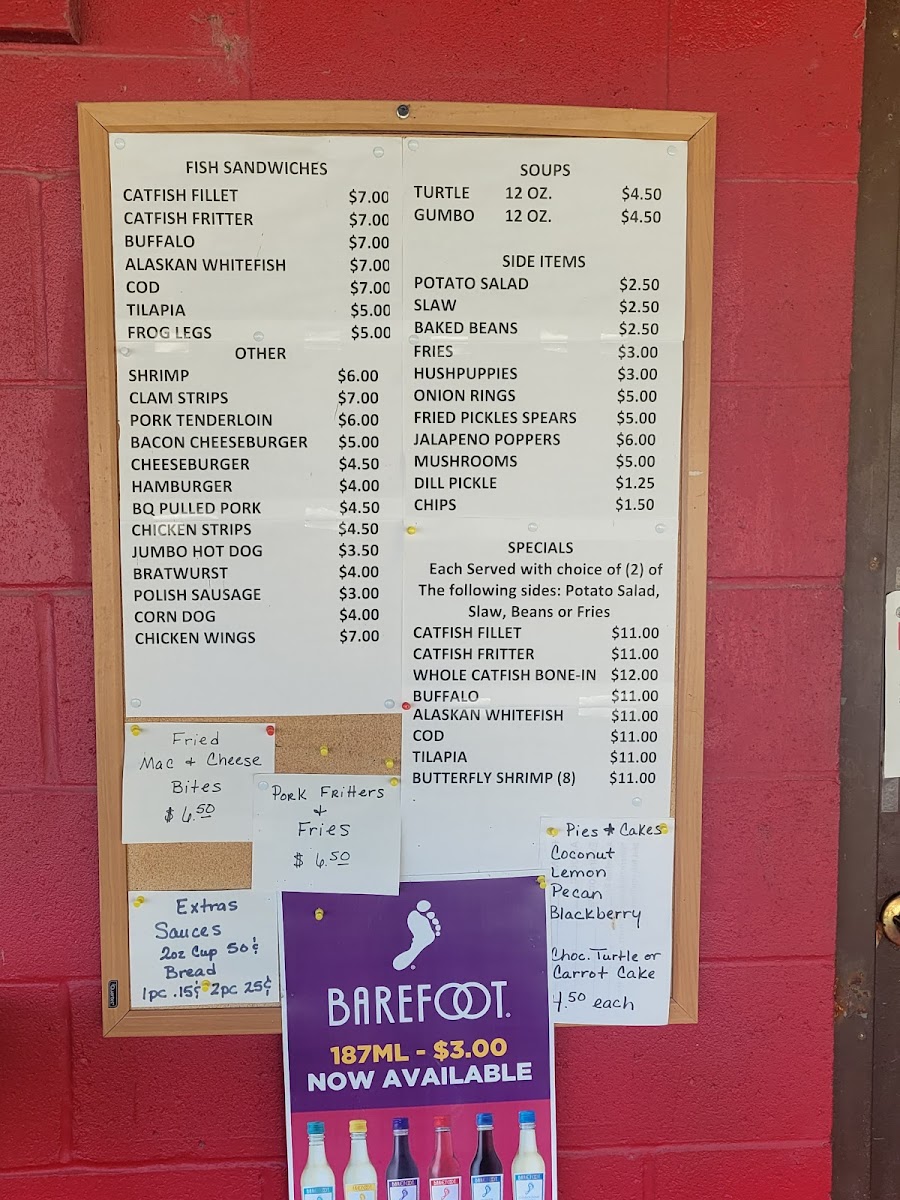 FISH SANDWICHES
CATFISH FILLET $7.00
CATFISH FRITTER $7.00
BUFFALO $7.00
ALASKAN WHITEFISH $7.00
COD $7.00
TILAPIA $5.00
FROG LEGS $5.00
OTHER
SHRIMP $6.00
CLAM STRIPS $7.00
PORK TENDERLOIN $6.00
BACON CHEESEBURGER $5.00
CHEESEBURGER $4.50
HAMBURGER $4.00
BQ PULLED PORK $4.50
CHICKEN STRIPS $4.50
JUMBO HOT DOG $3.50
BRATWURST $4.00
POLISH SAUSAGE $3.00
CORN DOG $4.00
CHICKEN WINGS $7.00
SOUPS
TURTLE 12 OZ. $4.50
GUMBO 12 OZ. $4.50
SIDE ITEMS
POTATO SALAD $2.50
SLAW $2.50
BAKED BEANS $2.50
FRIES $3.00
HUSHPUPPIES $3.00
ONION RINGS $5.00
FRIED PICKLES SPEARS $5.00
JALAPENO POPPERS $6.00
MUSHROOMS $5.00
DILL PICKLE $1.25
CHIPS $1.50
SPECIALS
Each Served with choice of (2) of
The following sides: Potato Salad,
Slaw, Beans or Fries
CATFISH FILLET $11.00
CATFISH FRITTER $11.00
WHOLE CATFISH BONE-IN $12.00
BUFFALO $11.00
ALASKAN WHITEFISH $11.00
COD $11.00
TILAPIA $11.00
BUTTERFLY SHRIMP (8) $11.00
Fried
Mac + Cheese
Bites
$ 6.50
Pork Fritters
+
Fries
$ 6.50
Extras
Sauces
2oz Cup 50¢
Bread
1pc .15¢ 2pc 25¢
Pies + Cakes
Coconut
Lemon
Pecan
Blackberry
Choc. Turtle or
Carrot Cake
4.50 each
BAREFOOT.
187ML - $3.00
NOW AVAILABLE